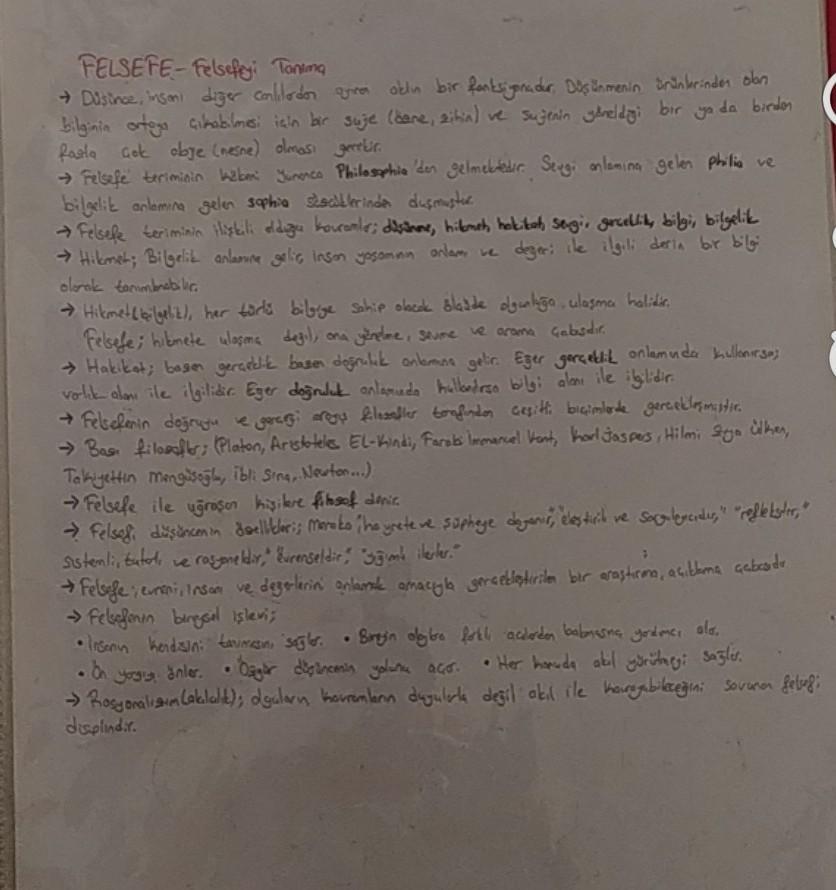 FELSEFE - Felsefeyi Tanıma
→ Düşünce, insanı diğer canlılardan ayıran aklın bir fonksiyonudur. Düşünmenin ürünlerinden olan
bilginin ortaya çıkabilmesi için bir suje (özne, zihin) ve sujenin yöneldiği bir ya da birden
fazla çok obje (nesne) olması gerekir.
→ Felsefe teriminin kökeni yunanca Philosophia'dan gelmektedir. Sevgi anlamına gelen philia ve
bilgelik anlamına gelen sophia sözcüklerinden oluşmuştur.
→ Felsefe teriminin ilişkili olduğu kavramlar; düşünme, hikmet, hakikat, sevgi, gerçeklik, bilgi, bilgelik
→ Hikmet; Bilgelik anlamına gelir, insan yaşamının anlamı ve değeri ile ilgili derin bir bilgi
olarak tanımlanabilir.
→ Hikmet (bilgelik), her türlü bilgiye sahip olacak ölçüde olgunluğa ulaşma halidir.
Felsefe; hikmete ulaşma değil, ona yönelme, sevme ve arama çabasıdır.
→ Hakikat; bazen gerçeklik bazen doğruluk anlamına gelir. Eğer gerçeklik anlamında kullanılırsa;
varlık alanı ile ilgilidir. Eğer doğruluk anlamında kullanılırsa bilgi alanı ile ilgilidir.
→ Felsefenin doğruyu ve gerçeği arayışı filozoflar tarafından çeşitli biçimlerde gerçekleşmiştir.
→ Bazı filozoflar; (Platon, Aristoteles, El-Kindi, Farabi, Immanuel Kant, Karl Jaspers, Hilmi Ziya Ülken,
Takiyettin Mengüşoğlu, İbni Sina, Newton...)
→ Felsefe ile uğraşan kişilere filozof denir.
→ Felsefi düşüncenin özellikleri; Meraka, "hayrete ve şüpheye dayanır," "eleştirel ve sorgulayıcıdır," "refleksiftir,"
sistemli, tutarlı ve rasyoneldir," "evrenseldir," "yığımlı ilerler."
→ Felsefe; evreni, insanı ve değerlerini anlamak amacıyla gerçekleştirilen bir araştırma, açıklama çabasıdır
→ Felsefenin bireysel işlevi;
• İnsanın kendisini tanımasını sağlar. • Bireyin olaylara farklı açılardan bakmasına yardımcı olur.
• Ön yargıyı önler. • Özgür düşüncenin yolunu açar. • Her konuda akıl yürütmeyi sağlar.
→ Rasyonalizm (akılcılık); olguların kavramların duyularla değil akıl ile kavranabileceğini savunan felsefi
disiplindir.